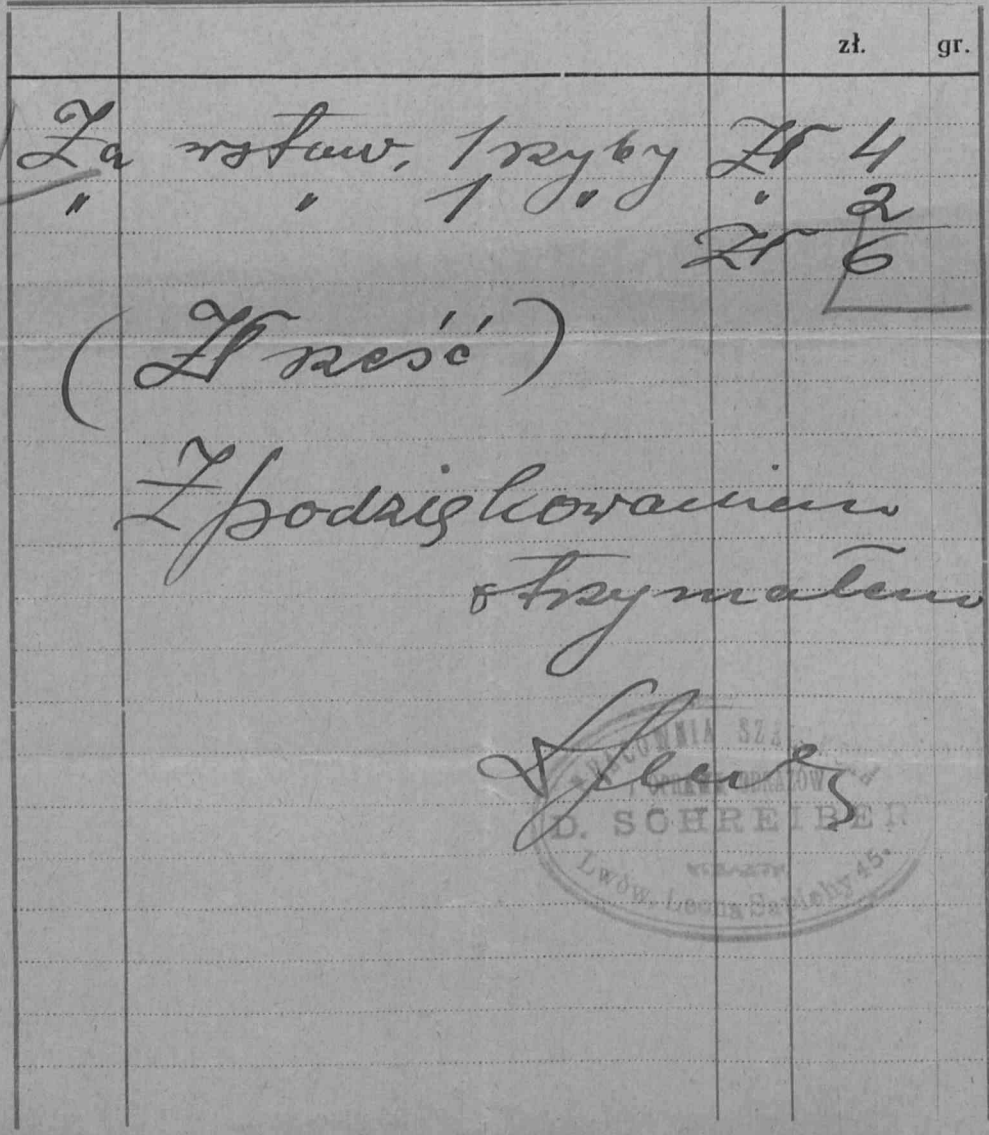 zł. gr.
Za wstaw. 1 szyby Zł 4
" " 1 " " 2
Zł 6
(Zł sześć)
Z podziękowaniem
otrzymałem
PRACOWNIA
OPRAWA OBRAZÓW
D. SCHREIBER
Lwów, Leona Sapiehy 45.